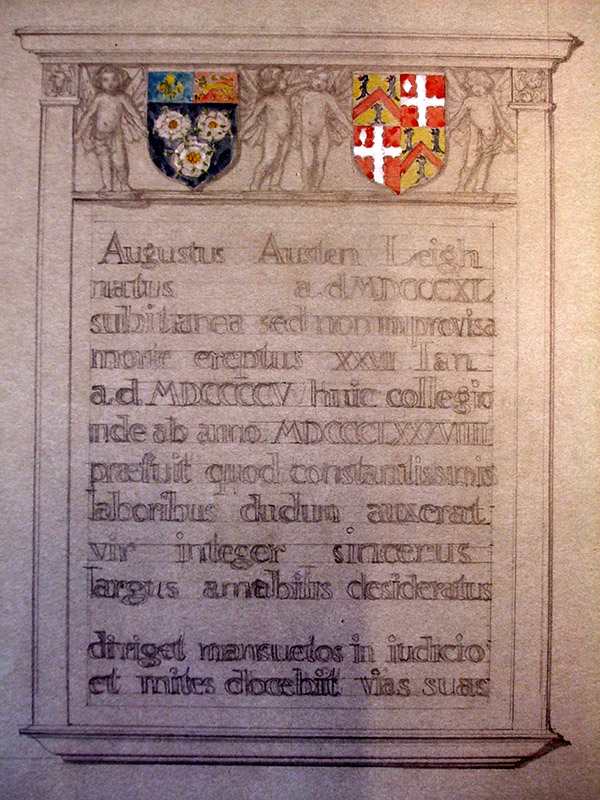 Augustus Austen Leigh
natus a.d. MDCCCXL
subitanea sed non improvisa
morte ereptus XXVII Ian
a.d. MDCCCCV huic collegio
inde ab anno MDCCCLXXXVIIII
præfuit quod constantissimis
laboribus dudum auxerat
vir integer sincerus
largus amabilis desideratus
diriget mansuetos in iudicio
et mites docebit vias suas